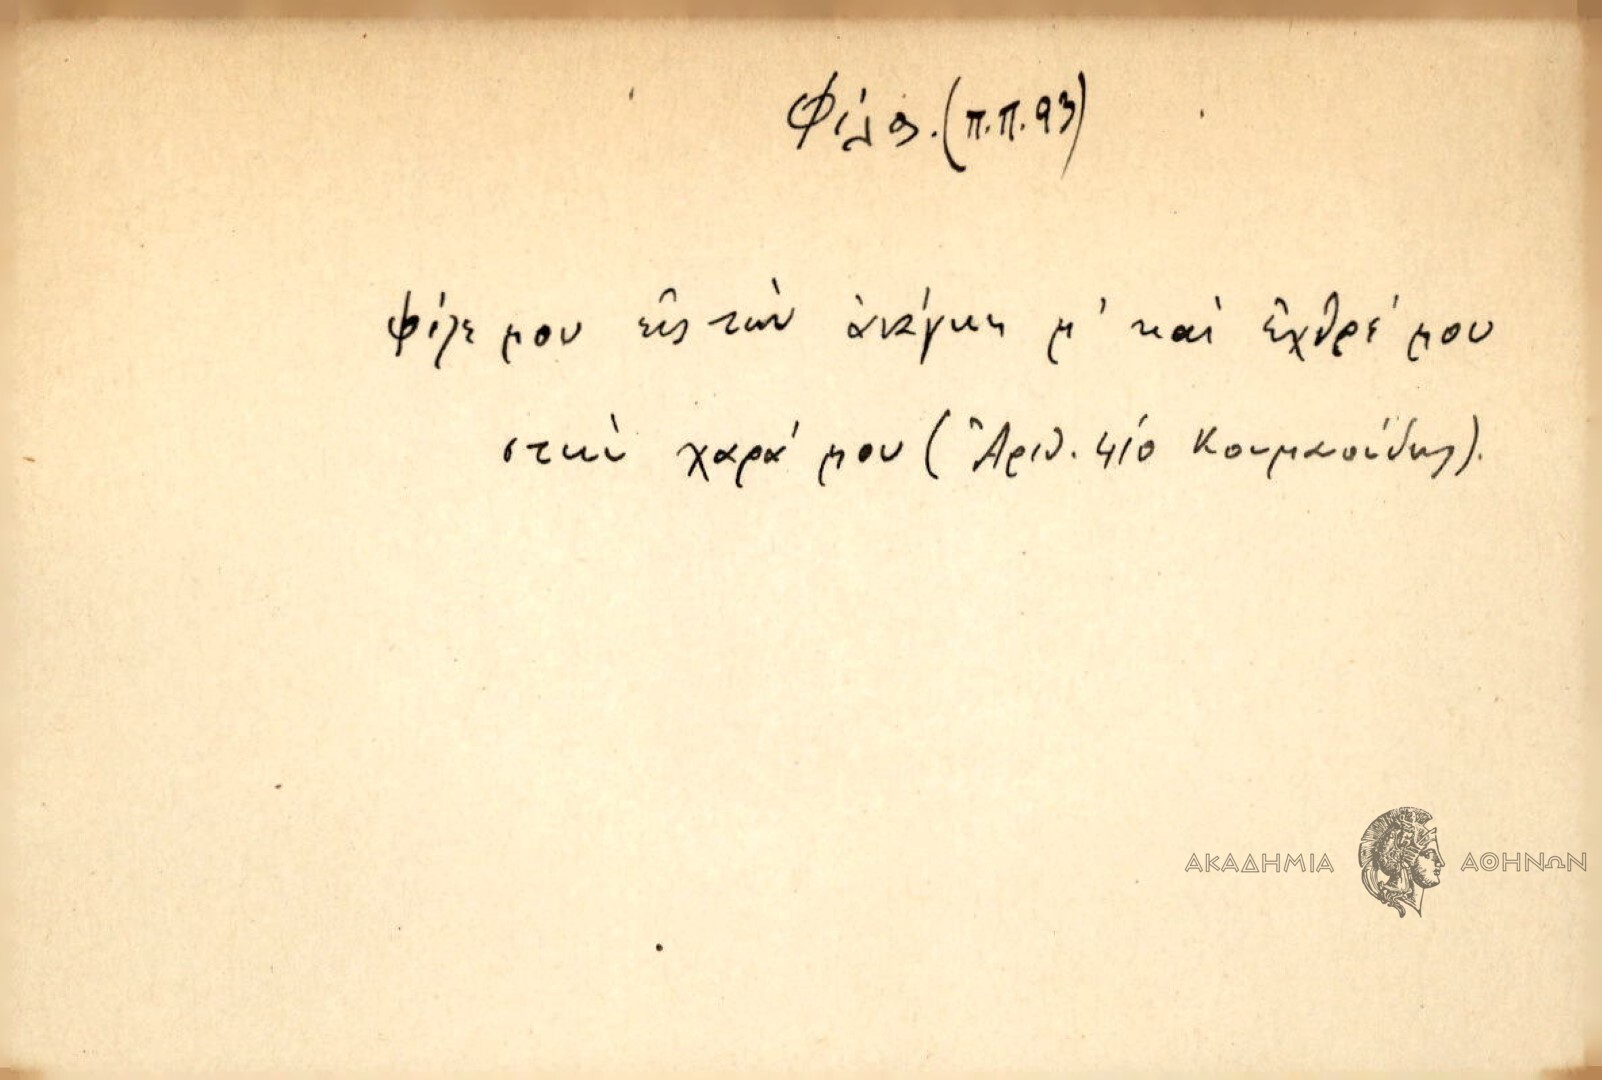 Φίλος. (π.π. 93)
Φίλε μου εἰς τὴν ἀνάγκη μ' καὶ ἐχθρέ μου
στὴν χαρά μου (Ἀριθ. 410 Κουμανούδης).
ΑΚΑΔΗΜΙΑ ΑΘΗΝΩΝ